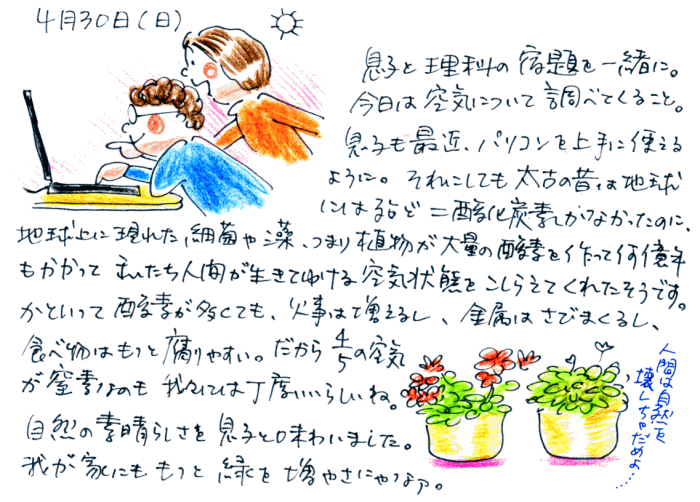 4月30日(日)
息子と理科の宿題を一緒に。
今日は空気について調べてくること。
息子も最近、パソコンを上手に使える
ように。それにしても太古の昔は地球
にはるほど二酸化炭素しかなかったのに、
地球上に現れた細菌や藻、つまり植物が大量の酸素を作って何億年
もかかって私たち人間が生きてゆける空気状態をこしらえてくれたそうです。
かといって酸素が多くても、火事は増えるし、金属はさびまくるし、
食べ物はもっと腐りやすい。だから4/5の空気
が窒素なのも我々には丁度いいらしいね。
自然の素晴らしさを息子と味わいました。
我が家にももっと緑を増やさにゃなァ。
人間は自然を
壊しちゃだめよ……